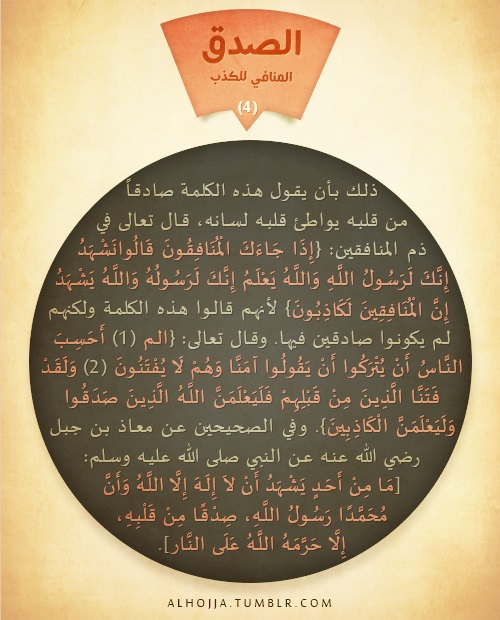 الصدق
المنافي للكذب
(4)
ذلك بأن يقول هذه الكلمة صادقاً
من قلبه يواطئ قلبه لسانه، قال تعالى في
ذم المنافقين: {إِذَا جَاءَكَ الْمُنَافِقُونَ قَالُوانَشْهَدُ
إِنَّكَ لَرَسُولُ اللَّهِ وَاللَّهُ يَعْلَمُ إِنَّكَ لَرَسُولُهُ وَاللَّهُ يَشْهَدُ
إِنَّ الْمُنَافِقِينَ لَكَاذِبُونَ} لأنهم قالوا هذه الكلمة ولكنهم
لم يكونوا صادقين فيها. وقال تعالى: {الم (1) أَحَسِبَ
النَّاسُ أَنْ يُتْرَكُوا أَنْ يَقُولُوا آمَنَّا وَهُمْ لَا يُفْتَنُونَ (2) وَلَقَدْ
فَتَنَّا الَّذِينَ مِنْ قَبْلِهِمْ فَلَيَعْلَمَنَّ اللَّهُ الَّذِينَ صَدَقُوا
وَلَيَعْلَمَنَّ الْكَاذِبِينَ}. وفي الصحيحين عن معاذ بن جبل
رضي الله عنه عن النبي صلى الله عليه وسلم:
[مَا مِنْ أَحَدٍ يَشْهَدُ أَنْ لاَ إِلَهَ إِلَّا اللَّهُ وَأَنَّ
مُحَمَّدًا رَسُولُ اللَّهِ، صِدْقًا مِنْ قَلْبِهِ،
إِلَّا حَرَّمَهُ اللَّهُ عَلَى النَّارِ].
ALHOJJA.TUMBLR.COM